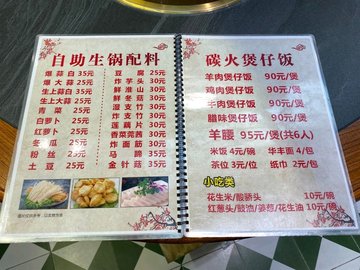 自助生锅配料
爆蒜白 35元
爆大蒜 35元
生上蒜白 35元
生上大蒜 35元
青菜 25元
白萝卜 25元
红萝卜 25元
冬瓜 25元
粉丝 25元
土豆 25元
豆腐 25元
炸芋头 30元
鲜淮山 30元
鲜冬菇 30元
湿支竹 30元
炸支竹 30元
莲藕片 30元
香菜茼茜 30元
炸面筋 30元
马蹄 35元
金针菇 35元
碳火煲仔饭
羊肉煲仔饭 90元/煲
鸡肉煲仔饭 90元/煲
牛肉煲仔饭 90元/煲
腊味煲仔饭 90元/煲
羊腰 95元/煲(共6人)
米饭 4元/碗 华丰面 4/包
茶位 3元/位 纸巾 2元/包
小吃类
花生米/酸荞头 10元/碗
红葱头/豉油/姜葱/花生油 10元/碗